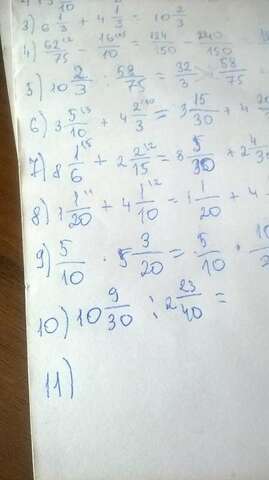 10
3) 6 1/3 + 4 1/3 = 10 2/3
4) 62/75 - 16/10 = 124/150 - 240/150
5) 10 2/3 : 58/75 = 32/3 · 58/75
6) 3 5/10 + 4 2/3 = 3 15/30 + 4
7) 8 1/6 + 2 2/15 = 8 5/30 + 2 4/30
8) 1 1/20 + 4 1/10 = 1 1/20 + 4
9) 5/10 · 5 3/20 = 5/10 ·
10) 10 9/30 : 2 23/40 =
11)